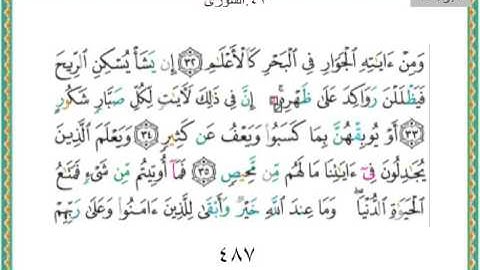 ٤٢.الشورى
وَمِنْ ءَايَٰتِهِ الْجَوَارِ فِي الْبَحْرِ كَالْأَعْلَٰمِ ﴿٣٢﴾ إِن يَشَأْ يُسْكِنِ الرِّيحَ
فَيَظْلَلْنَ رَوَاكِدَ عَلَىٰ ظَهْرِهِ إِنَّ فِي ذَٰلِكَ لَآيَٰتٍ لِّكُلِّ صَبَّارٍ شَكُورٍ
﴿٣٣﴾ أَوْ يُوبِقْهُنَّ بِمَا كَسَبُوا وَيَعْفُ عَن كَثِيرٍ ﴿٣٤﴾ وَيَعْلَمَ الَّذِينَ
يُجَٰدِلُونَ فِي ءَايَٰتِنَا مَا لَهُم مِّن مَّحِيصٍ ﴿٣٥﴾ فَمَا أُوتِيتُم مِّن شَيْءٍ فَمَتَٰعُ
الْحَيَوٰةِ الدُّنْيَا ۖ وَمَا عِندَ اللَّهِ خَيْرٌ وَأَبْقَىٰ لِلَّذِينَ ءَامَنُوا وَعَلَىٰ رَبِّهِمْ
٤٨٧